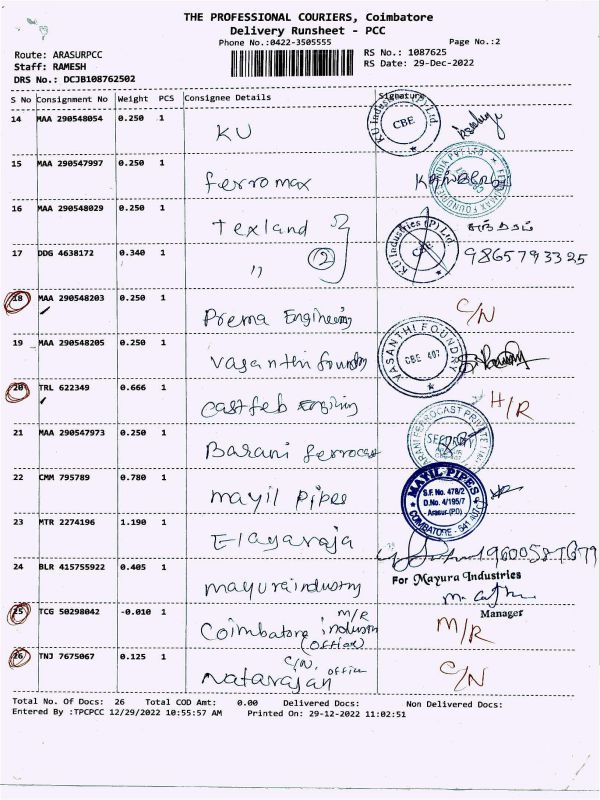 THE PROFESSIONAL COURIERS, Coimbatore
Delivery Runsheet - PCC
Phone No.:0422-3505555 Page No.:2
Route: ARASURPCC RS No.: 1087625
Staff: RAMESH RS Date: 29-Dec-2022
DRS No.: DCJB108762502
S No Consignment No Weight PCS Consignee Details Signature
14 MAA 290548054 0.250 1 KU
KU Industries (P) Ltd. CBE
15 MAA 290547997 0.250 1 ferromax
16 MAA 290548029 0.250 1 Texland
KU Industries (P) Ltd CBE
17 DDG 4638172 0.340 1 " 2 9865793325
18 MAA 290548203 0.250 1 Prema Engineering C/N
19 MAA 290548205 0.250 1 Vasanthi foundry
VASANTHI FOUNDRY CBE 407
20 TRL 622349 0.666 1 H/R
21 MAA 290547973 0.250 1 Barani ferrocast
22 CMM 795789 0.780 1 mayil pipes
MAYIL PIPES
S.F. No. 478/2
D.No. 4/195/7
Arasur.(PO)
COIMBATORE - 641 407
23 MTR 2274196 1.190 1 Elayaraja
24 BLR 415755922 0.405 1 mayuraindustry
For Mayura Industries
Manager
25 TCG 50298042 -0.010 1 Coimbatore M/R M/R
(office)
26 TNJ 7675067 0.125 1 Natarajan C/N, office C/N
Total No. Of Docs: 26 Total COD Amt: 0.00 Delivered Docs: Non Delivered Docs:
Entered By :TPCPCC 12/29/2022 10:55:57 AM Printed On: 29-12-2022 11:02:51